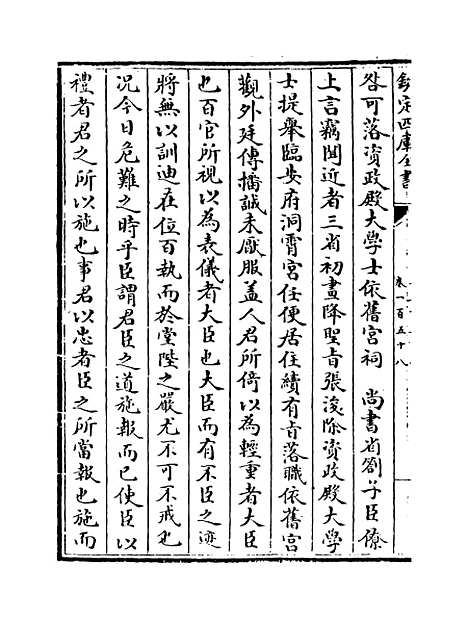 欽定四庫全書
卷一百五十八
咎可落資政殿大學士依舊宮祠　尚書省劄子臣僚
上言竊聞近者三省初畫降聖㫖張浚除資政殿大學
士提舉臨安府洞霄宮任便居住續有㫖落職依舊宮
觀外廷傳播誠未厭服蓋人君所倚以為輕重者大臣
也百官所視以為表儀者大臣也大臣而有不臣之迹
將無以訓迪在位百執而於堂陛之嚴尤不可不戒也
况今日危難之時乎臣謂君臣之道施報而已使臣以
禮者君之所以施也事君以忠者臣之所當報也施而